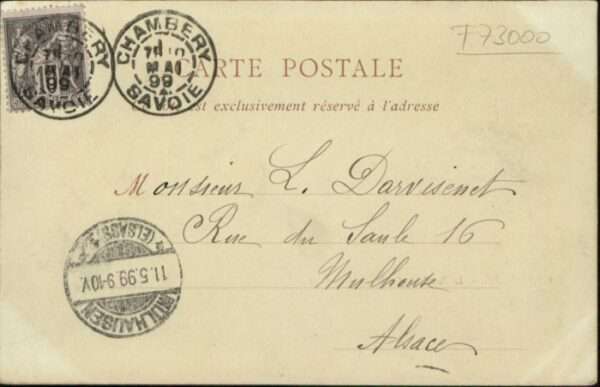 F73000
CHAMBERY
MAI
99
SAVOIE
CHAMBERY
MAI
99
SAVOIE
CARTE POSTALE
est exclusivement réservé à l'adresse
Monsieur L. Darvisenet
Rue du Saule 16
Mulhouse
Alsace
(ELSASS)
11.5.99.9-10V.
MÜLHAUSEN